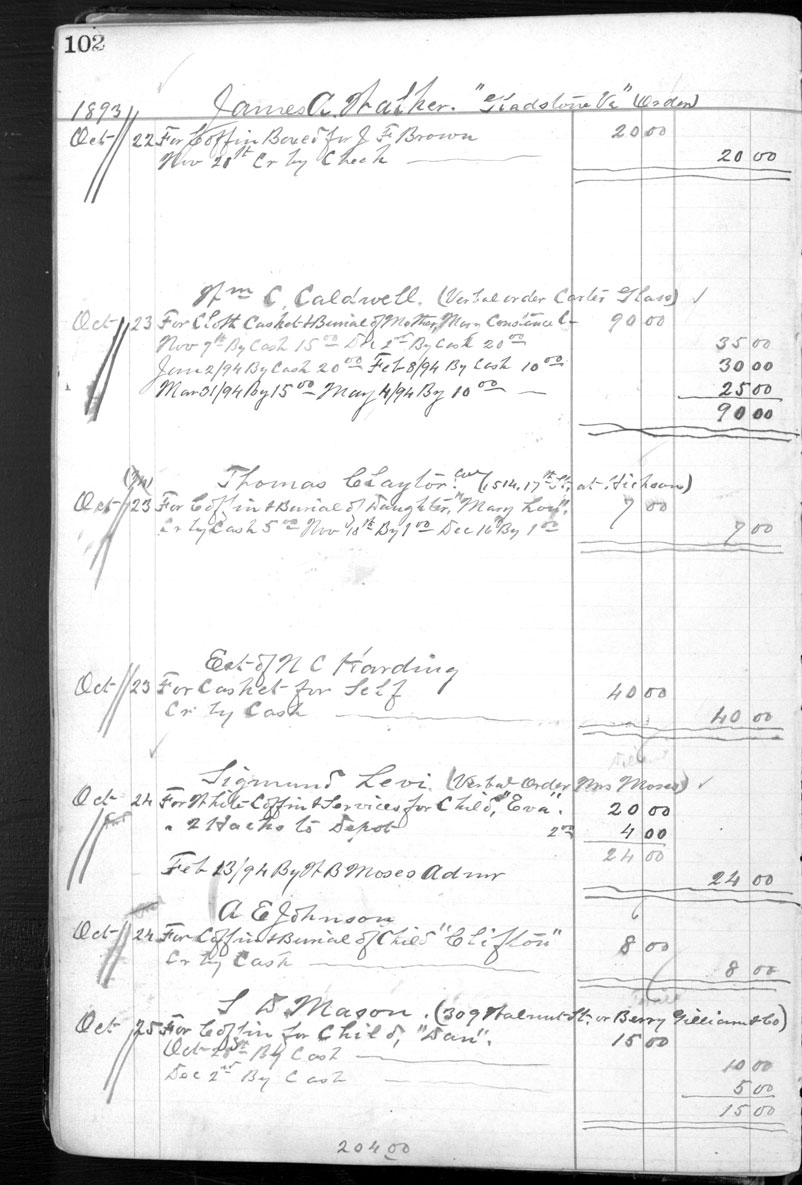 102
1893 James A. Walker. "Gladstone Va" (Order)
Oct 22 For Coffin Boxed for J. F. Brown 20 00
Nov 20st Cr by Check 20 00
Wm C. Caldwell. (Verbal order Carter Glass) ✓
Oct 23 For Cloth Casket & Burial of Mother, Mary Constance C- 90 00
Nov 9th By Cash 15 00 Dec 2nd By Cash 20 00 35 00
Jan 2/94 By Cash 20 00 Feb 8/94 By Cash 10 00 30 00
Mar 31/94 By 15 00 May 4/94 By 10 00 25 00
90 00
Thomas Claytor. Col (1514. 17th St. at Jackson)
Oct 23 For Coffin & Burial of Daughter, "Mary Lou". 7 00
Cr by Cash 5 00 Nov 18th By 1 00 Dec 16th By 1 00 7 00
Est of N C Harding
Oct 23 For Casket for Self 40 00
Cr by Cash 40 00
Sigmund Levi. (Verbal Order Mrs Moses) ✓
Oct 24 For White Coffin & Services for Child, "Eva". 20 00
" 2 Hacks to Depot 2 00 4 00
24 00
Feb 23/94 By W B Moses Admr 24 00
A E Johnson
Oct 24 For Coffin & Burial of Child "Clifton" 8 00
Cr by Cash 8 00
S. D. Mason. (309 Walnut St. or Berry Gilliam & Co)
Oct 25 For Coffin for Child, "Dan". 15 00
Oct 28th By Cash 10 00
Dec 2nd By Cash 5 00
15 00
204 00